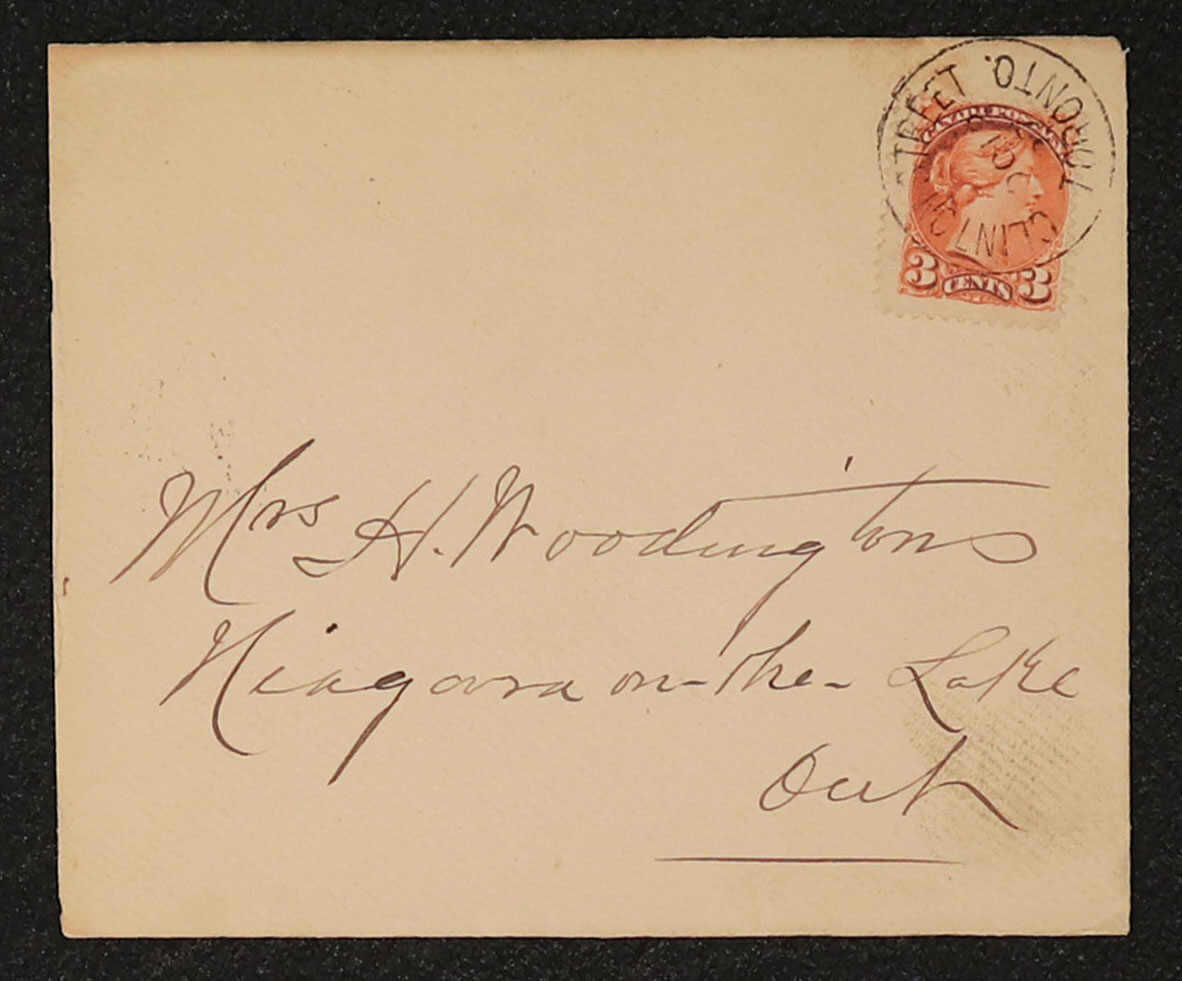 CLINTON STREET TORONTO.
OC
CANADA POSTAGE
3 CENTS 3
Mrs H. Woodingtons
Niagara on-the-Lake
Ont